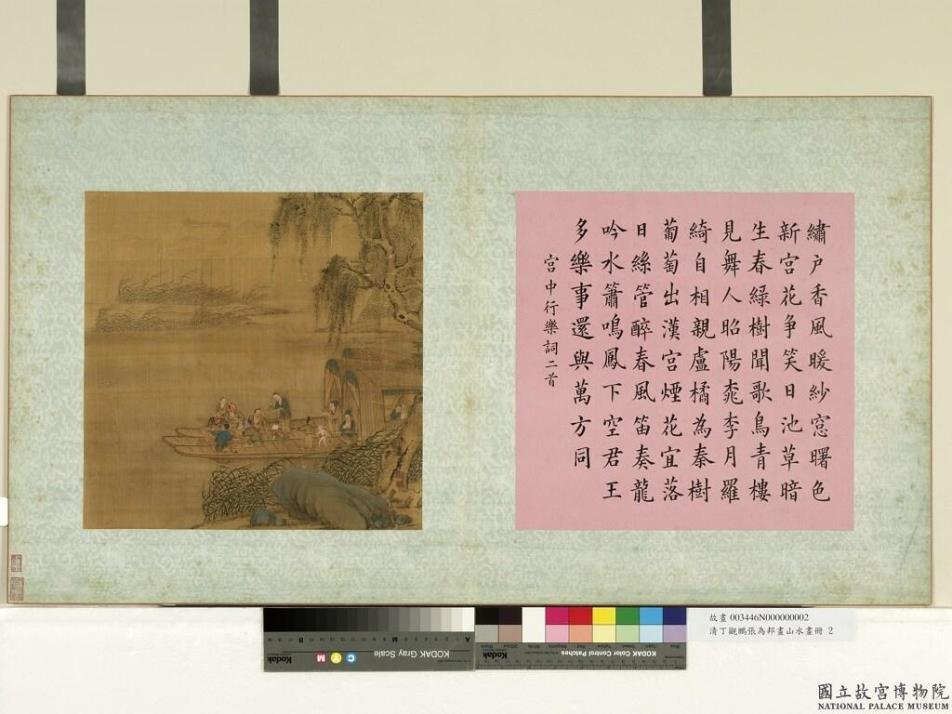 繡戶香風暖紗窓曙色
新宮花争笑日池草暗
生春綠樹聞歌鳥青樓
見舞人昭陽桃李月羅
綺自相親盧橘為秦樹
葡萄出漢宮煙花宜落
日絲管醉春風笛奏龍
吟水簫鳴鳳下空君王
多樂事還與萬方同
宮中行樂詞二首
Kodak Gray Scale
C Y M
KODAK Color Control Patches
故畫 003446N000000002
清丁觀鵬張為邦畫山水畫冊 2
國立故宮博物院
NATIONAL PALACE MUSEUM